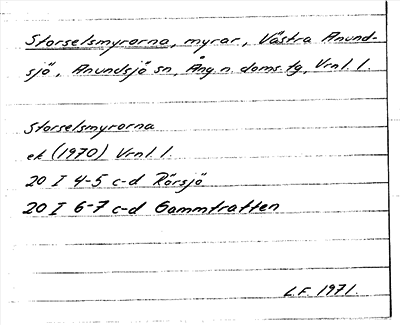 Storselsmyrorna, myrar, Västra Anund-
sjö, Anundsjö sn, Ång.n. doms.tg, Vrnl. l.
Storselsmyrorna
ek (1970) Vrnl. l.
20 I 4-5 c-d Rörsjö
20 I 6-7 c-d Gammtratten
L.F. 1971.